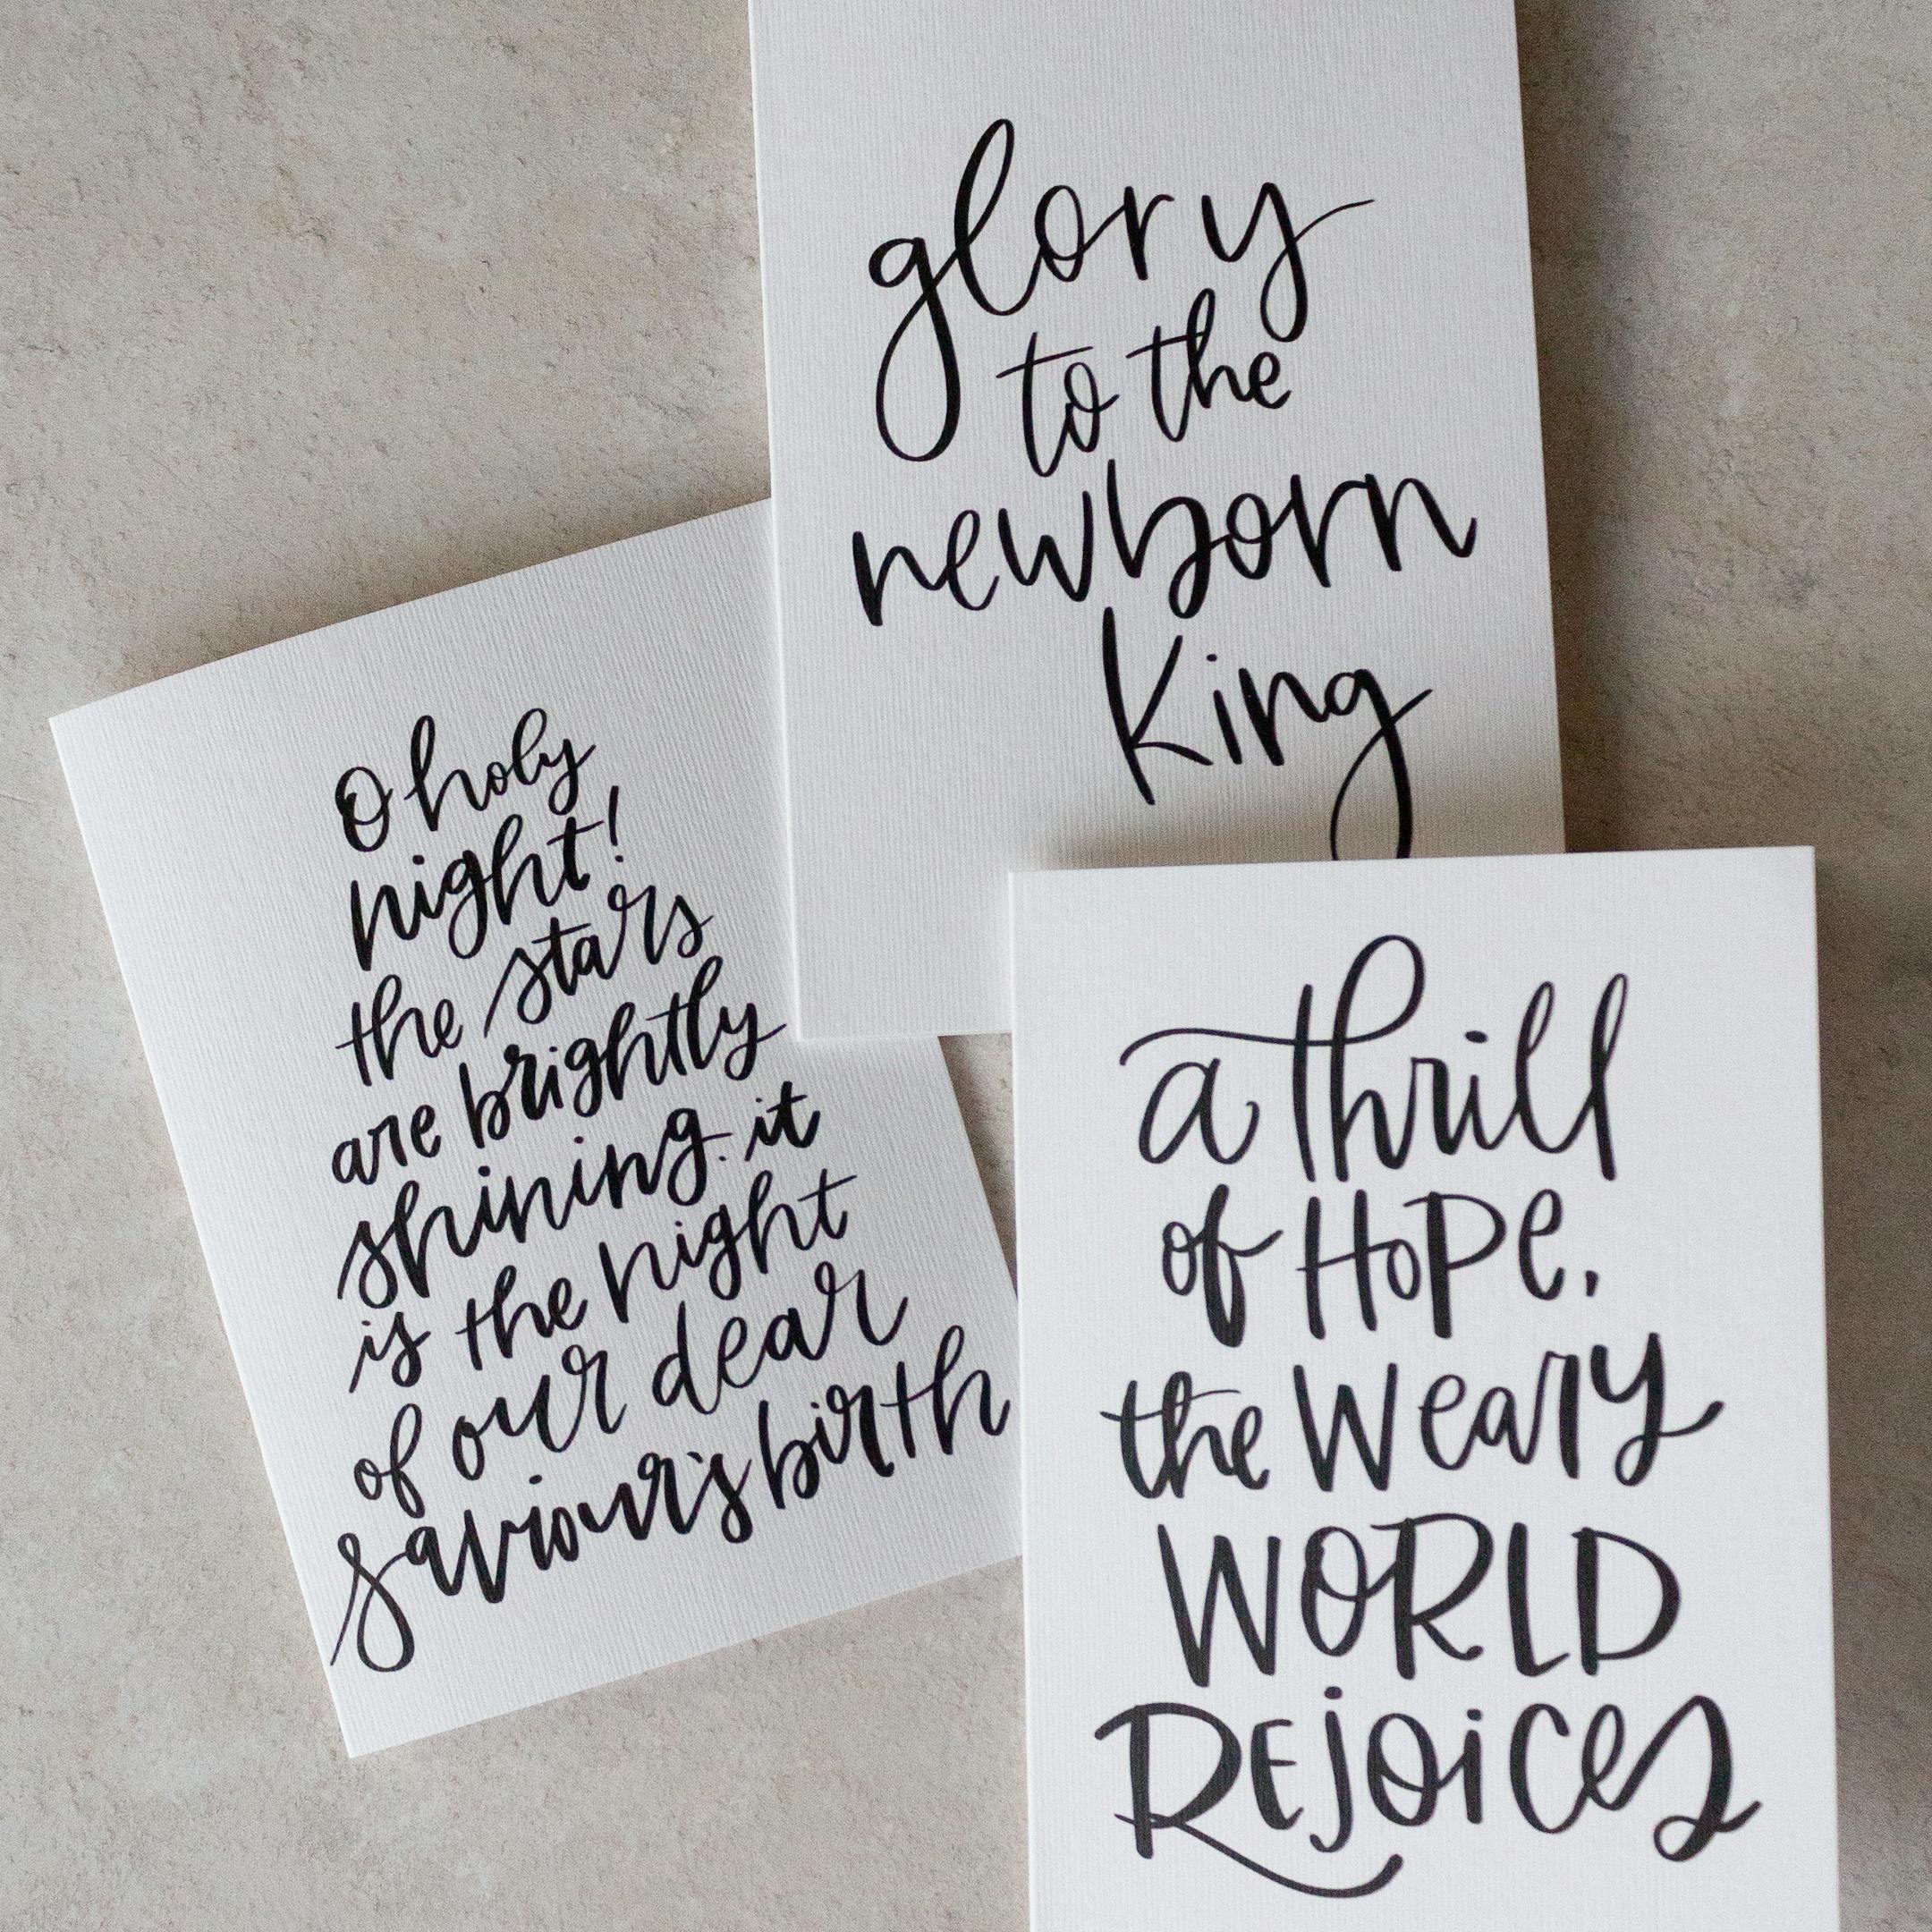 glory
to the
newborn
King
O holy
night!
the stars
are brightly
shining. it
is the night
of our dear
saviour's birth
a thrill
of HoPe,
the Weary
WORLD
REjOiCes